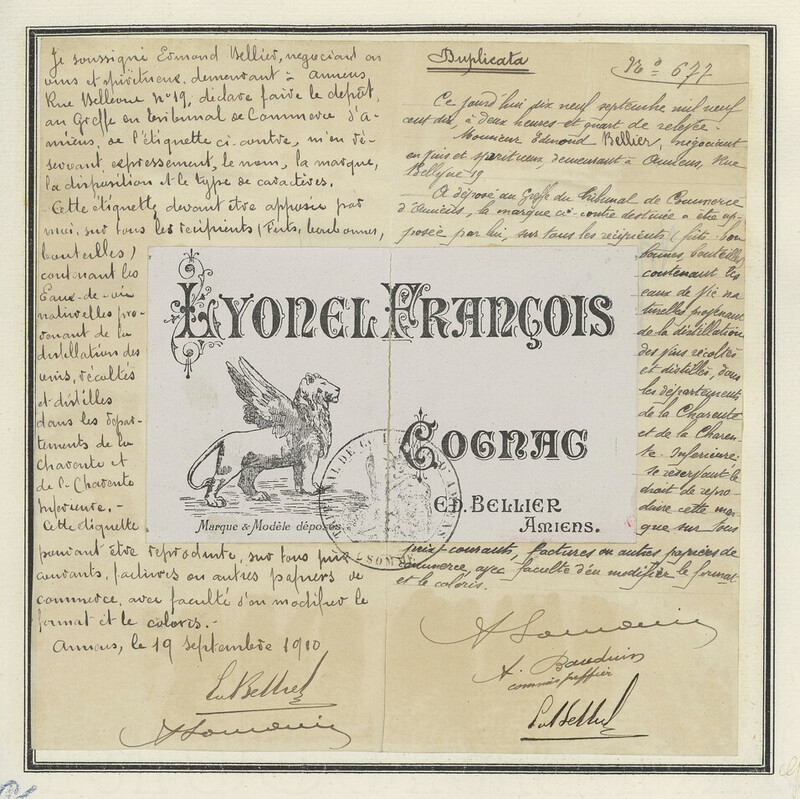 Je soussigné Edmond Bellier, negociant en
vins et spiritueux, demeurant à Amiens
Rue Bellevue Nº 19, déclare faire le dépôt,
au Greffe du tribunal de Commerce d'A-
miens, de l'étiquette ci-contre, m'en ré-
servant expressément, le nom, la marque,
la disposition et le type de caractères.
Cette étiquette devant être apposée par
moi, sur tous les récipients (Fûts, bonbonnes,
bouteilles)
contenant les
Eaux-de-vie
naturelles pro-
venant de la
distillation des
vins, récoltés
et distillés
dans les dépar-
tements de la
Charente et
de la Charente
Inférieure.-
Cette étiquette
pouvant être reproduite, sur tous prix
courants, factures ou autres papiers de
commerce, avec faculté d'en modifier le
format et le coloris.-
Amiens, le 19 septembre 1910
Ed Bellier
Duplicata
Nº 677
Ce jourd'hui dix neuf septembre mil neuf
cent dix, à deux heures et quart de relevée.
Monsieur Edmond Bellier, négociant
en vins et spiritueux, demeurant à Amiens, Rue
Bellevue 19
A déposé au Greffe du Tribunal de Commerce
d'Amiens, la marque ci-contre destinée à être ap-
posée par lui, sur tous les récipients (fûts, bon
bonnes, bouteilles)
contenant les
eaux de vie na
turelles provenant
de la distillation
des vins récoltés
et distillés, dans
les départements
de la Charente
et de la Charen-
te Inférieure.
se réservant le
droit de repro-
duire cette mar-
que sur tous
prix-courants, factures ou autres papiers de
commerce, avec faculté d'en modifier le format
et le coloris.
A. Bauduin
commis greffier
Ed Bellier
LYONEL FRANÇOIS
COGNAC
ED. BELLIER
AMIENS.
Marque & Modèle déposés.
TRIBUNAL DE COMMERCE
SOMME